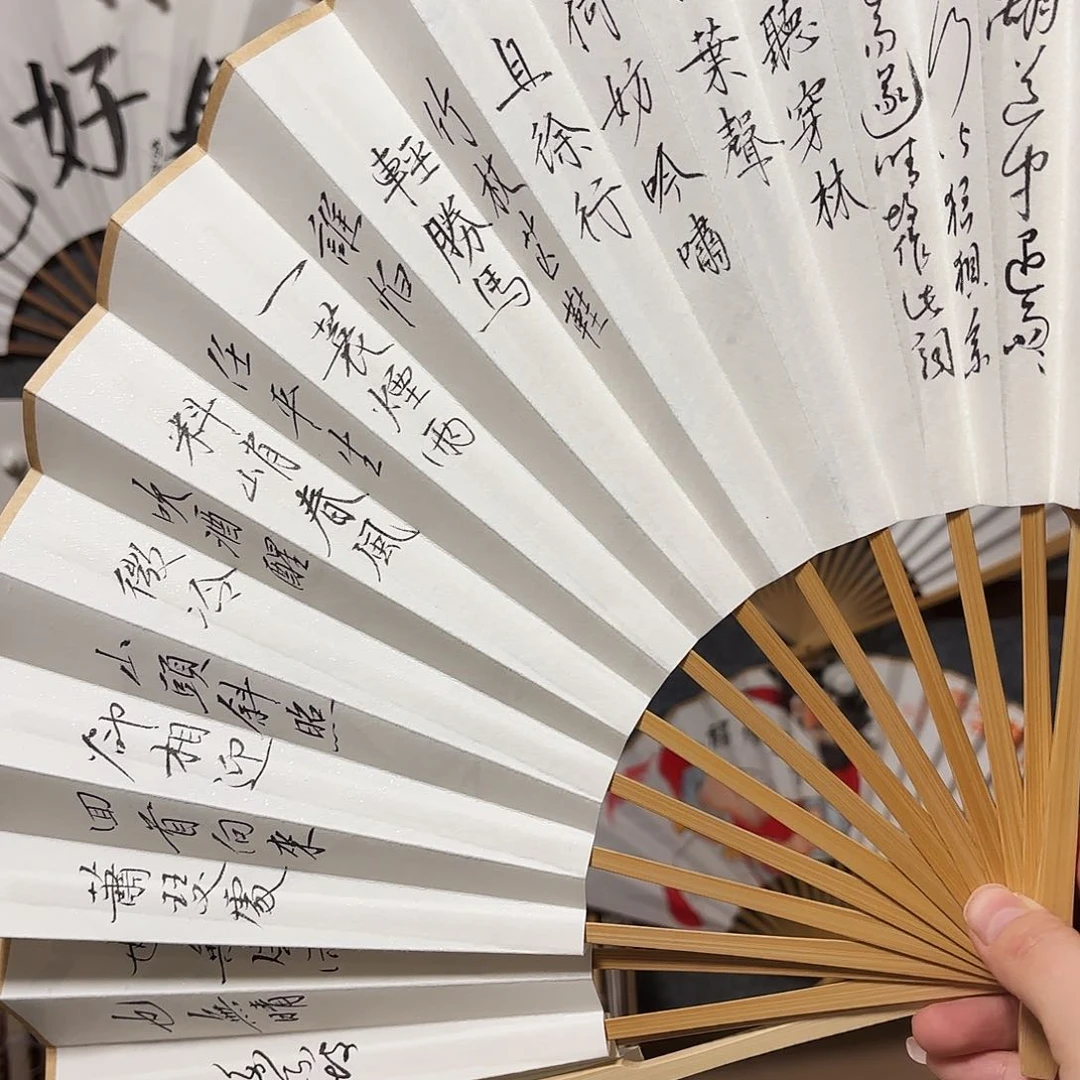 湖道中遇雨
狼狽余
而遂晴故作此詞
聽穿林
葉聲
何妨吟嘯
且徐行
竹杖芒鞋
輕勝馬
誰怕
一蓑煙雨
任平生
料峭春風
吹酒醒
微冷
山頭斜照
卻相迎
回首向來
蕭瑟處
也無晴
好